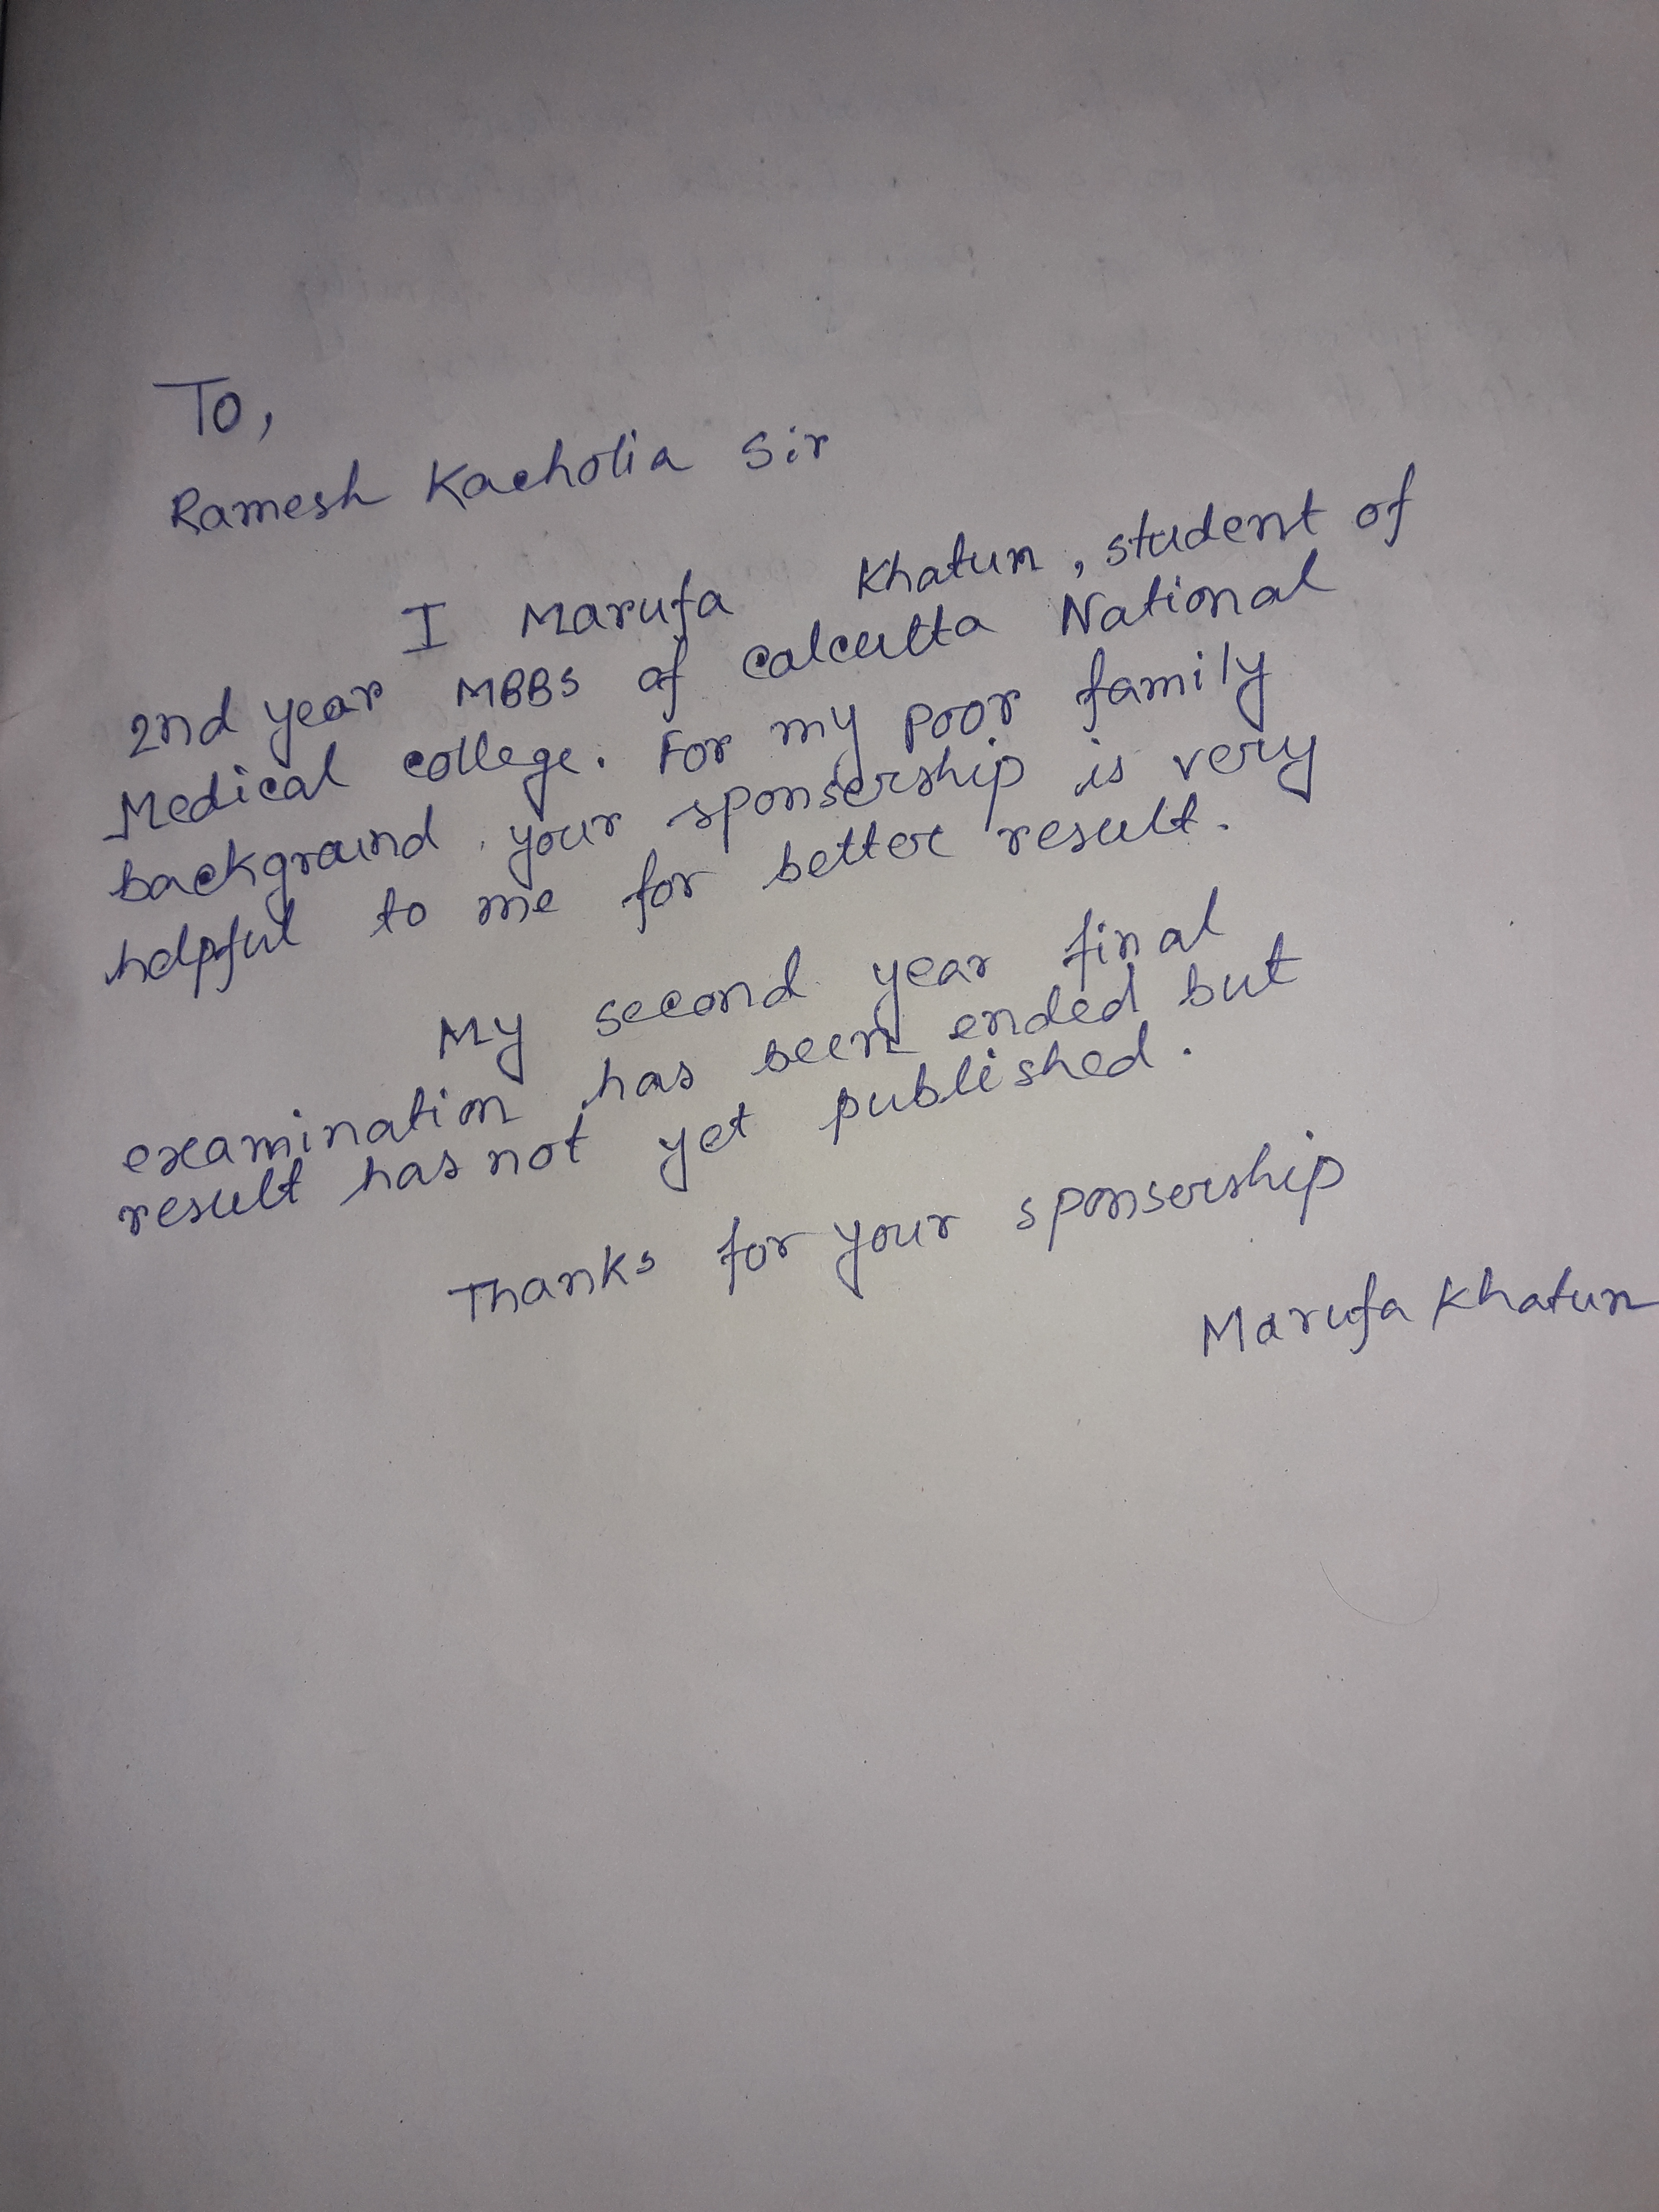 To,
Ramesh Kacholia Sir
I Marufa Khatun, student of
2nd year MBBS of calcutta National
Medical college. For my poor family
background your sponsership is very
helpful to me for better result.
My second year final
examination has been ended but
result has not yet published.
Thanks for your sponsership
Marufa Khatun